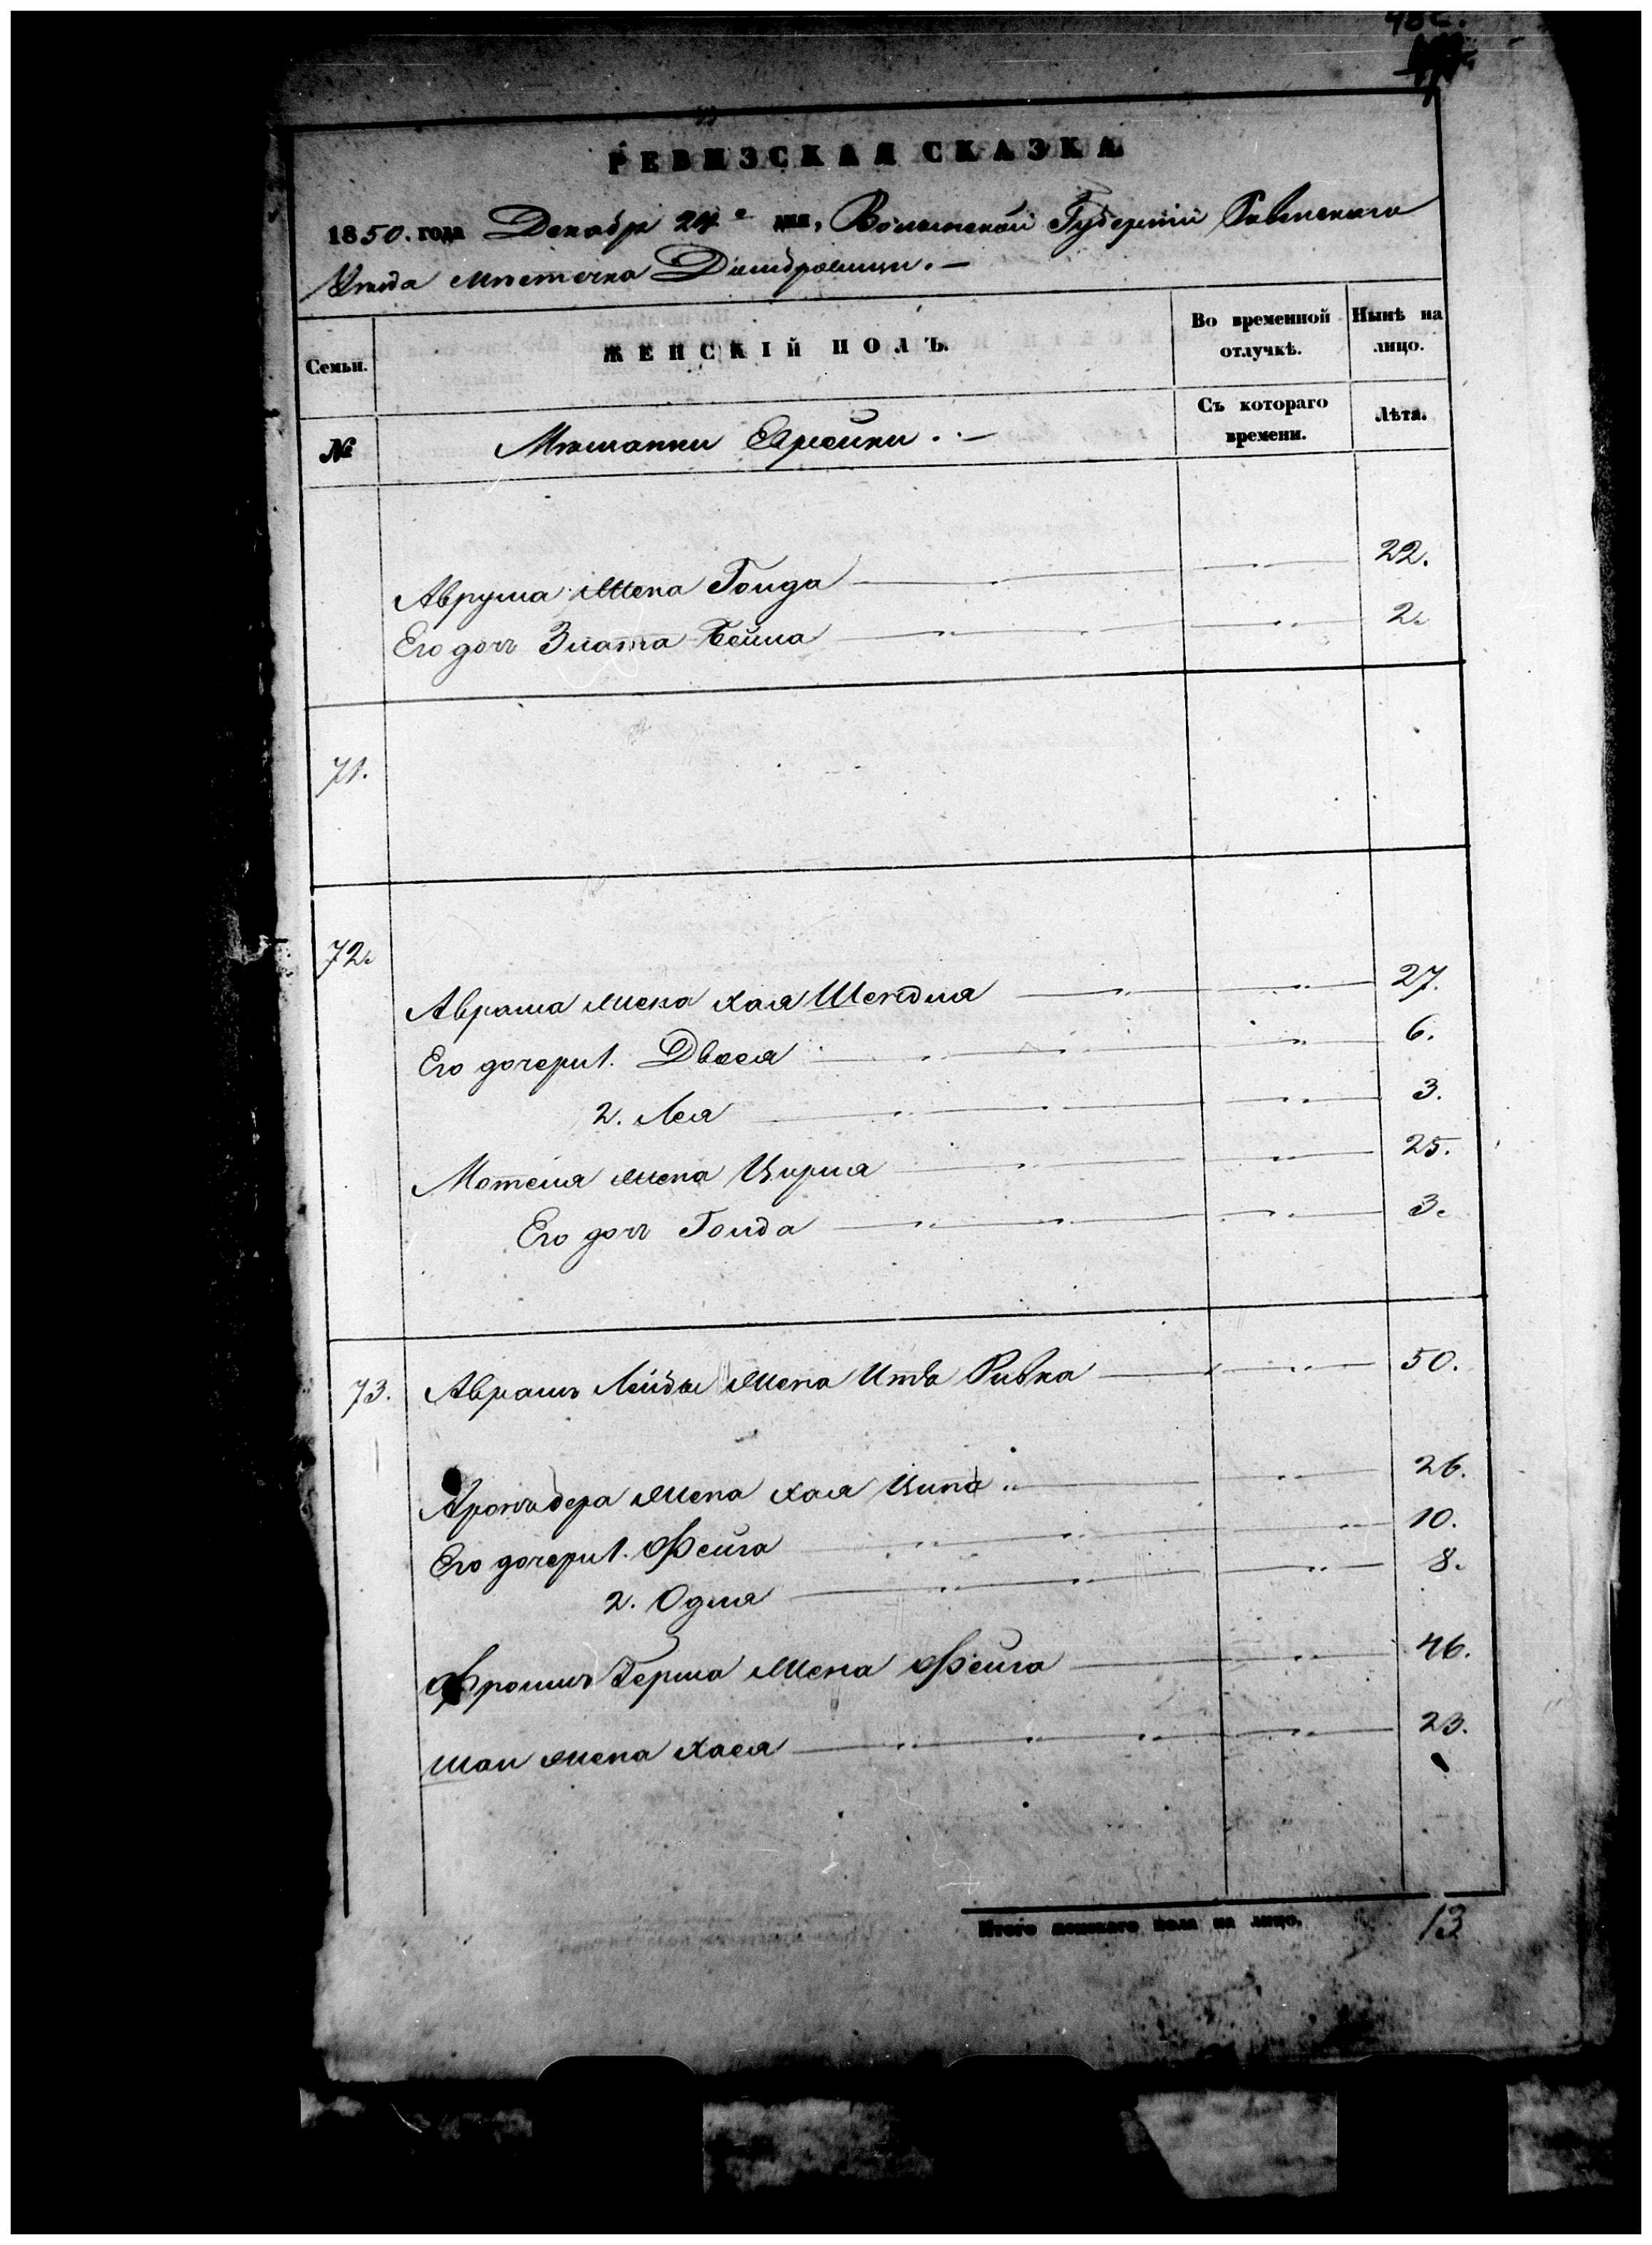 РЕВИЗСКАЯ СКАЗКА
1850. года Декабря 24 дня, Волынской Губернии Ровенскаго
Уезда местечка Домбровицы. —
Семьи.
ЖЕНСКІЙ ПОЛЪ.
Во временной отлучкѣ.
Нынѣ на лицо.
№
Мѣщанки Еврейки. —
Съ котораго времени.
Лѣта.
Аврума жена Голда 22.
Его дочь Злата Бейла 2.
71.
72.
Аврама жена Хая Шендля 27.
Его дочери 1. Двося 6.
2. Лея 3.
Мотеля жена Цирля 25.
Его дочь Голда 3.
73. Аврамъ Лейбы жена Итта Ривка 50.
Аронъ бера жена ХаяЦипа 26.
Его дочери 1. Фейга 10.
2. Одля 8.
Фроимъ Герша жена Фейга 46.
жена Хася 23.
Итого женскаго пола на лицо. 13